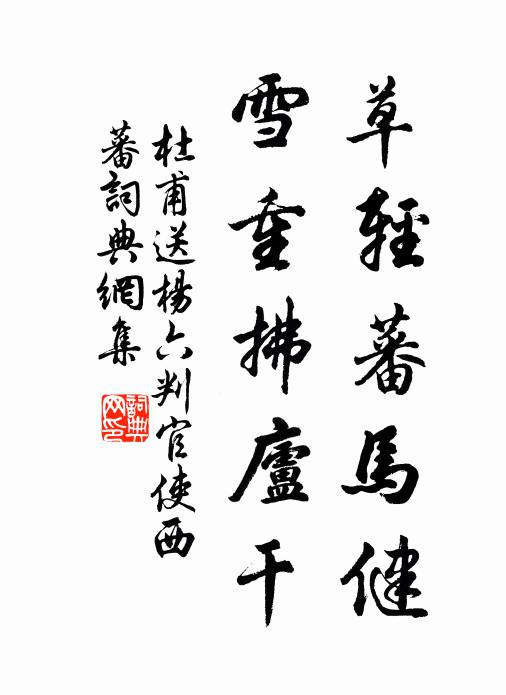 草輕蕃馬健
雪重拂廬干
杜甫送楊六判官使西
蕃詞典網集
詞典
网印